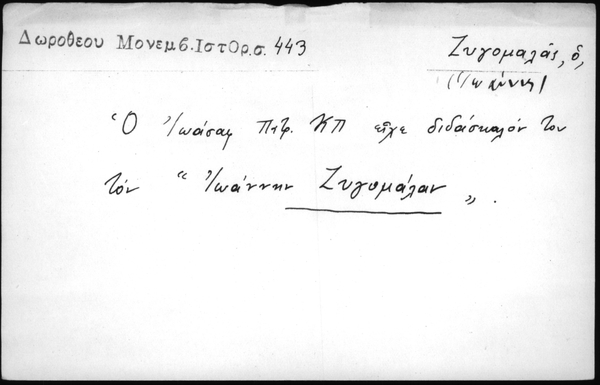 Δωροθεου Μονεμβ. Ιστορ. σ. 443
Ζυγομαλάς, ὁ,
(Ἰωάννης)
Ὁ Ἰωάσαφ Πτρ. ΚΠ εἶχε διδάσκαλόν του
τόν “Ἰωάννην Ζυγομάλαν„.